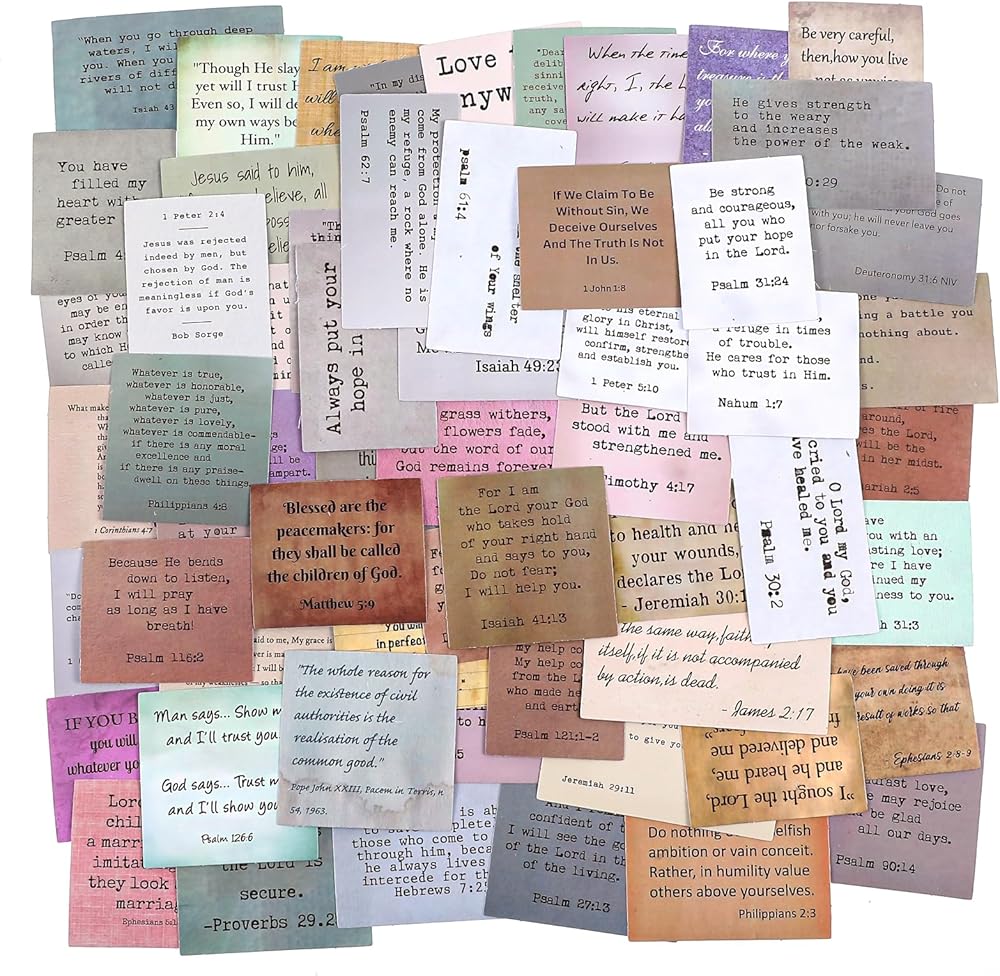 "When you go through deep
waters, I wil
you. When you
rivers of diff
will not d
Isiah 43
"Though He slay
yet will I trust H
Even so, I will de
my own ways be
Him."
I am
will
whe
"In my dis
Love
nyw
"Dear
delib
sinni
receive
truth,
any sa
cove
When the time
right, I, the L
will make it ha
For where y
treasure is th
yo
als
Be very careful,
then,how you live
not as unwise
You have
filled my
heart with
greater
Psalm 4
Jesus said to him,
believe, all
poss
elie
1 Peter 2:4
Jesus was rejected
indeed by men, but
chosen by God. The
rejection of man is
meaningless if God's
favor is upon you.
Bob Sorge
My protection
come from God alone. He is
my refuge, a rock where no
enemy can reach me.
Psalm 62:7
psalm 61:4
of Your wings
the shelter
If We Claim To Be
Without Sin, We
Deceive Ourselves
And The Truth Is Not
In Us.
1 John 1:8
He gives strength
to the weary
and increases
the power of the weak.
0:29
Be strong
and courageous,
all you who
put your hope
in the Lord.
Psalm 31:24
Do not
e of
with you; he will never leave you
your God goes
nor forsake you.
Deuteronomy 31:6 NIV
eyes of you
may be en
in order th
may know
to which H
calle
"Th
thin
Always put your
hope in
Me
Isaiah 49:23
his eternal
glory in Christ,
will himself restore
confirm, strengthe
and establish you.
1 Peter 5:10
a refuge in times
of trouble.
He cares for those
who trust in Him.
Nahum 1:7
one y
ing a battle you
nothing about.
nd.
s.
Whatever is true,
whatever is honorable,
whatever is just,
whatever is pure,
whatever is lovely,
whatever is commendable-
if there is any moral
excellence and
if there is any praise-
dwell on these things.
Philippians 4:8
What make
1 Corinthians 4:7
ge;
ll be
ampart.
thi
grass withers,
flowers fade,
but the word of our
God remains forever
But the Lord
stood with me and
strengthened me.
Timothy 4:17
O Lord my God,
cried to you and you
ave healed me.
Psalm 30:2
of fire
around,
es the Lord,
will be the
in her midst.
ariah 2:5
at your
Because He bends
down to listen,
I will pray
as long as I have
breath!
Psalm 116:2
Blessed are the
peacemakers: for
they shall be called
the children of God.
Matthew 5:9
For I am
the Lord your God
who takes hold
of your right hand
and says to you,
Do not fear;
I will help you.
Isaiah 41:13
to health and he
your wounds,
declares the Lo
- Jeremiah 30:1
ave
you with an
sting love;
re I have
inued my
ness to you.
h 31:3
"Do
com
cha
1
aid to me, My grace is
er is ma
I will b
of my weaknesses — so tha
you will
in perfec
My help co
My help co
from the L
who made he
and eart
Psalm 121:1-2
the same way,faith
itself,if it is not accompanied
by action,is dead.
- James 2:17
have been saved through
your own doing it is
result of works so that
Ephesians 2:8-9
IF YOU B
you will
whatever yo
Man says... Show m
and I'll trust you
God says... Trust m
and I'll show you
Psalm 126:6
"The whole reason for
the existence of civil
authorities is the
realisation of the
common good."
Pope John XXIII, Pacem in Terris, n
54, 1963.
to h
5
to give yo
Jeremiah 29:11
"I sought the Lord,
and he heard me,
and delivered me
dfast love,
we may rejoice
be glad
all our days.
Psalm 90:14
Lord
chil
a marr
imitat
they look
marria
Ephesians 5:1
the Lord is
secure.
-Proverbs 29.2
e is ab
to save completel
those who come to
through him, beca
he always lives
intercede for th
Hebrews 7:25
And I
confident of t
I will see the go
of the Lord in th
of the living.
Psalm 27:13
Do nothing selfish
ambition or vain conceit.
Rather, in humility value
others above yourselves.
Philippians 2:3